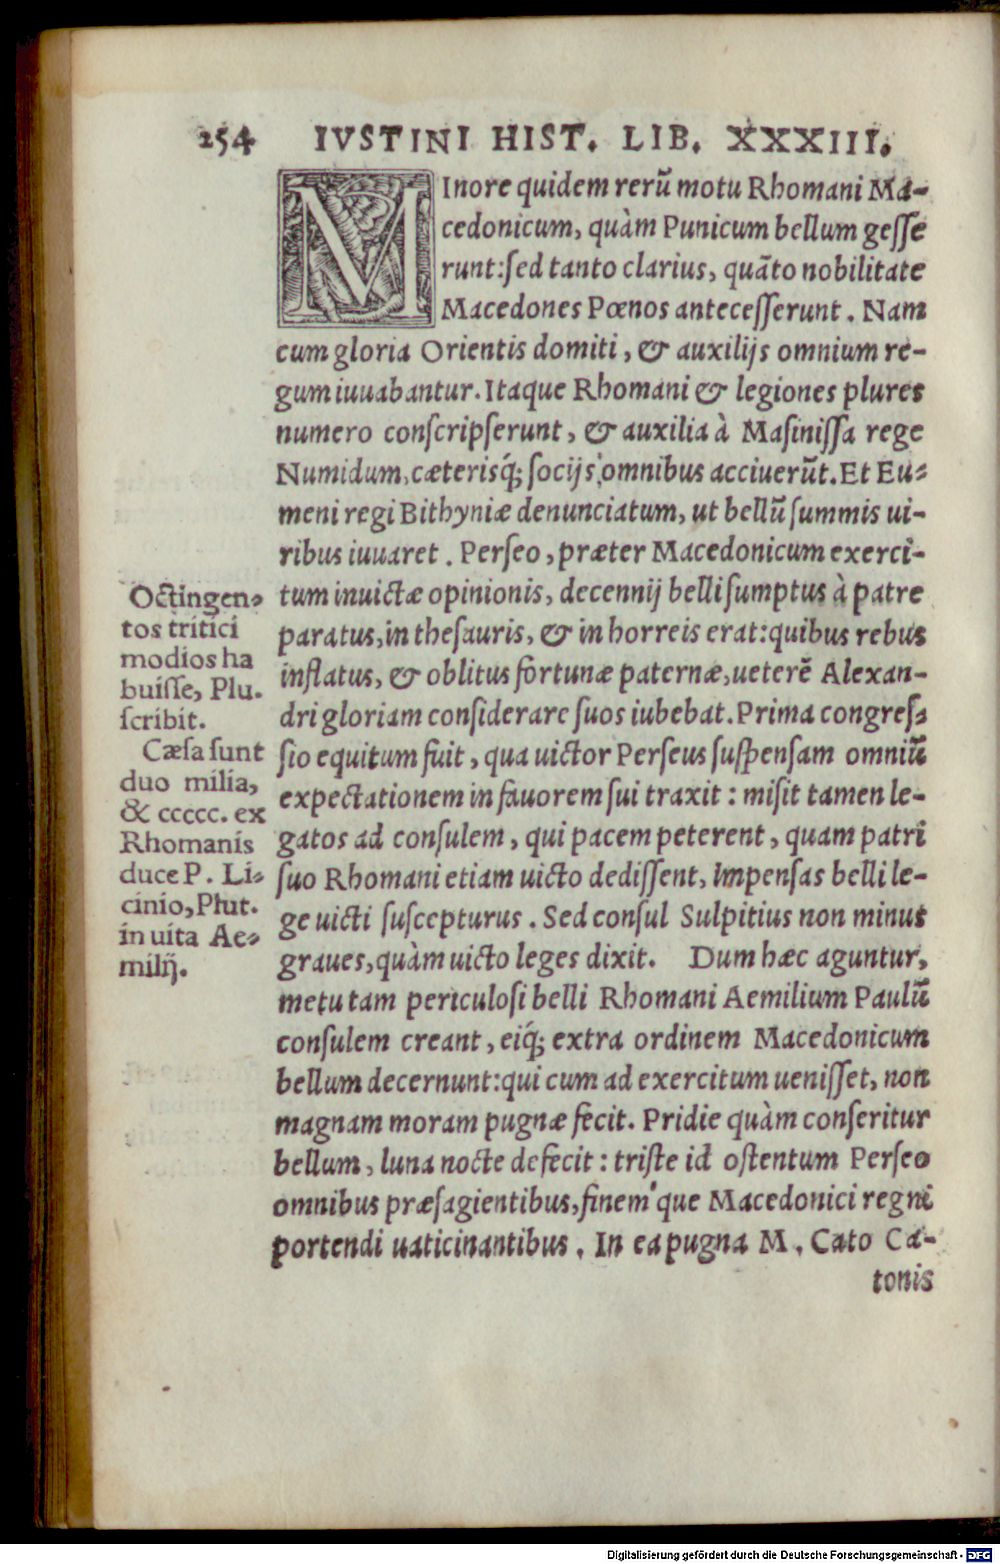 254 IVSTINI HIST. LIB. XXXIII.
MInore quidem rerū motu Rhomani Ma-
cedonicum, quàm Punicum bellum gesse
runt: sed tanto clarius, quāto nobilitate
Macedones Pœnos antecesserunt. Nam
cum gloria Orientis domiti, & auxilijs omnium re-
gum iuuabantur. Itaque Rhomani & legiones plures
numero conscripserunt, & auxilia à Masinissa rege
Numidum, cæterisq́; socijs omnibus acciuerūt. Et Eu-
meni regi Bithyniæ denunciatum, ut bellū summis ui-
ribus iuuaret. Perseo, præter Macedonicum exerci-
tum inuictæ opinionis, decennij belli sumptus à patre
paratus, in thesauris, & in horreis erat: quibus rebus
inflatus, & oblitus fortunæ paternæ, ueterē Alexan-
dri gloriam considerare suos iubebat. Prima congres-
sio equitum fuit, qua uictor Perseus suspensam omniū
expectationem in fauorem sui traxit: misit tamen le-
gatos ad consulem, qui pacem peterent, quam patri
suo Rhomani etiam uicto dedissent, Impensas belli le-
ge uicti suscepturus. Sed consul Sulpitius non minus
graues, quàm uicto leges dixit. Dum hæc aguntur,
metu tam periculosi belli Rhomani Aemilium Paulū
consulem creant, eiq́; extra ordinem Macedonicum
bellum decernunt: qui cum ad exercitum uenisset, non
magnam moram pugnæ fecit. Pridie quàm conseritur
bellum, luna nocte defecit: triste id ostentum Perseo
omnibus præsagientibus, finem que Macedonici regni
portendi uaticinantibus. In ea pugna M. Cato Ca-
tonis
Octingen-
tos tritici
modios ha
buisse, Plu.
scribit.
Cæsa sunt
duo milia,
& ccccc. ex
Rhomanis
duce P. Li-
cinio, Plut.
in uita Ae-
milij.
Digitalisierung gefördert durch die Deutsche Forschungsgemeinschaft - DFG